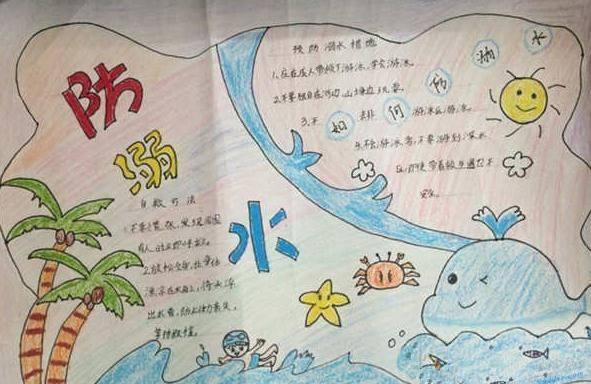 防
溺
水
如
何
防
溺
水
预防溺水措施
1.应在成人带领下游泳,学会游泳。
2.不要独自在河边、山塘边玩耍。
3.不去非游泳区游泳。
4.不会游泳者,不要游到深水
区,即使带着救生圈也不
安全。
自救方法
1.不要慌张,发现周围
有人
2.放松全身,让身体
漂浮在水面上,待水浮
出水面,防止体力丧失,
等待救援。